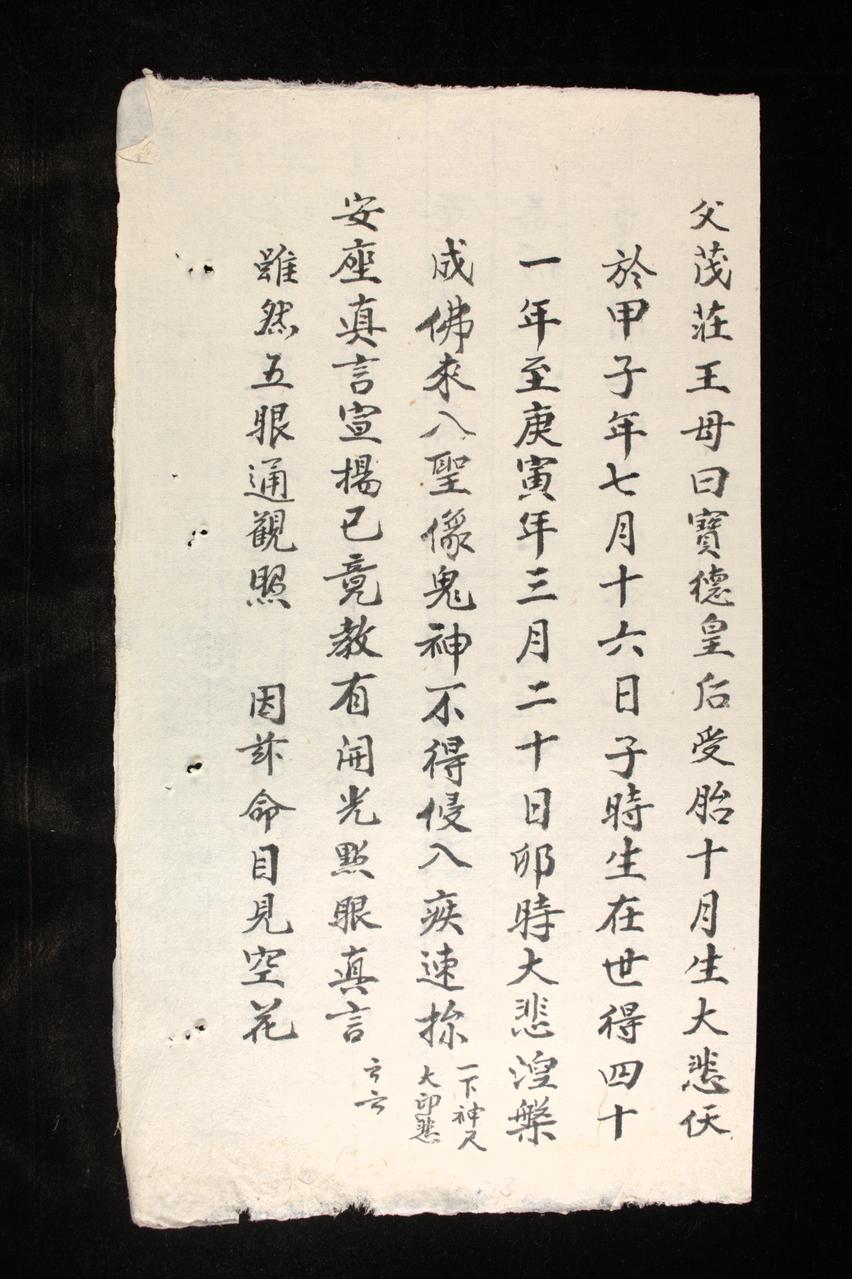 父茂莊王母曰寶德皇后受胎十月生大悲仸
於甲子年七月十六日子時生在世得四十
一年至庚寅年三月二十日卯時大悲湼槃
成佛來入聖像鬼神不得侵入疾速捺
一下神尺
大印悲
安座真言宣揚已竟教有開光點眼真言
云云
雖然五眼通觀照 因玆命目見空花